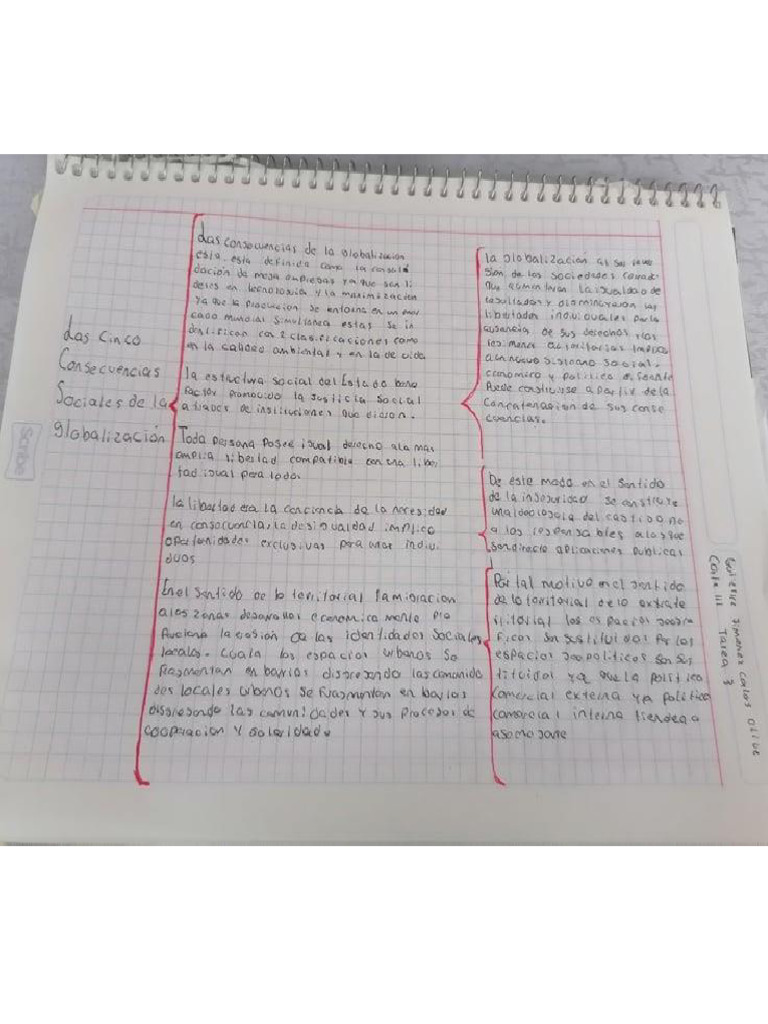 Las Cinco
Consecuencias
Sociales de la
globalización
Las consecuencias de la globalización
esta. esta definida como la consoli
dación de mega empresas ya que son li
deres en tecnología y la maximización
ya que la produccion se entorna en un mer
cado mundial simultanea estas se
con 2 clasificaciones como
en la calidad ambiental y en la de vida
la estructura social del Estado bene
factor promovido la justicia social
a traves de instituciones que dieron.
Toda persona posee igual derecho a la mas
amplia libertad compatible con una liber
tad igual para todos
la libertad era la conciencia de la necesidad
en consecuencia, la desigualdad implico
oportunidades exclusivas para unos indivi
duos
En el sentido de lo territorial la migracion
a las zonas desarrollas economicamente pro
la de las identidades sociales
locales. Cuala los espacios urbanos se
fragmentan en barrios disgregando las comunida
des locales urbanos se fragmentan en barrios
disgregando las comunidades y sus procesos de
cooperacion y solaridad.
la globalizacion as su
sion, de las sociedades
que aumentaron la igualdad de
resultados y disminuyeron las
libertades individuales por la
ausencia de sus derechos y los
a un nuevo sistema social.
economico y politico diferente
Puede construirse a partir de la
Concatenacion de sus conse
cuencias.
De este modo en el sentido
de la inseguridad se construye
una ideologia del castigo no
a los responsables a los que
son directo aplicaciones publicas
Por tal motivo en el sentido
de lo territorial de lo extrate
rritorial los espacios geogra
ficos son sustituidos por los
espacios geopoliticos son sus
tituidos ya que la politica
comercial externa ya politica
comercial interna tienden a
asemejarse
Gutierrez Jimenez Carlos Olive
Tarea 8
Scribe